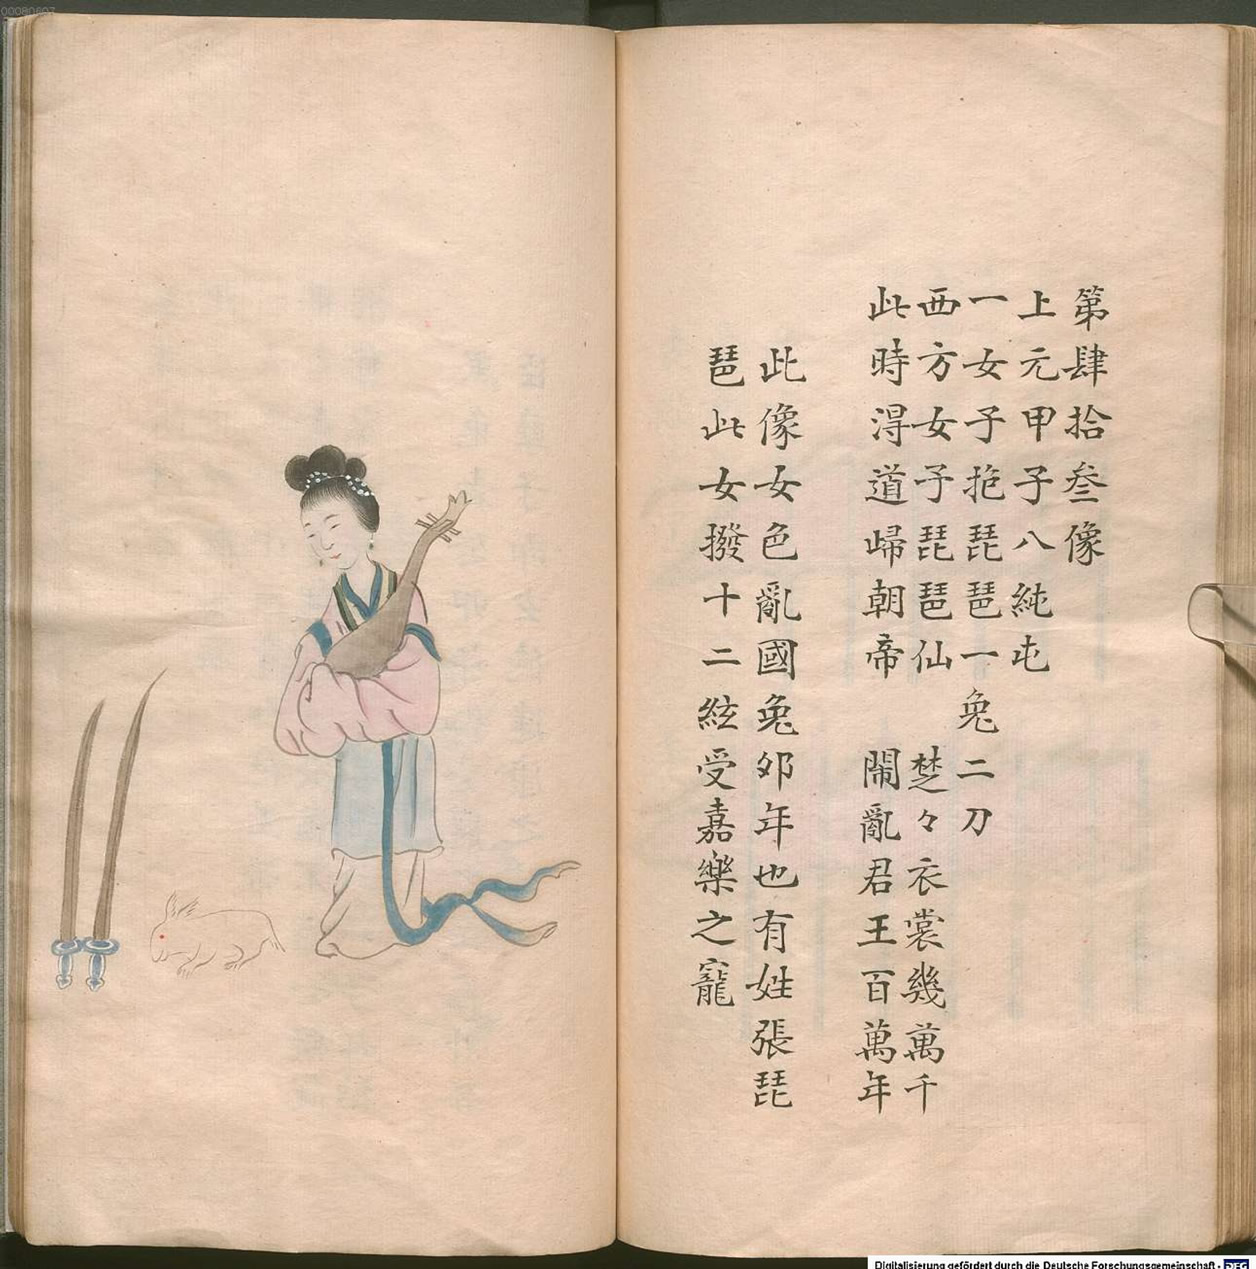 第肆拾叁像
上元甲子八純屯
一女子抱琵琶一兔二刀
西方女子琵琶仙　楚々衣裳幾萬千
此時得道歸朝帝　鬧亂君王百萬年
此像女色亂國兔卯年也有姓張琵
琶此女撥十二絃受嘉樂之寵
00080607
Digitalisierung gefördert durch die Deutsche Forschungsgemeinschaft - DFG